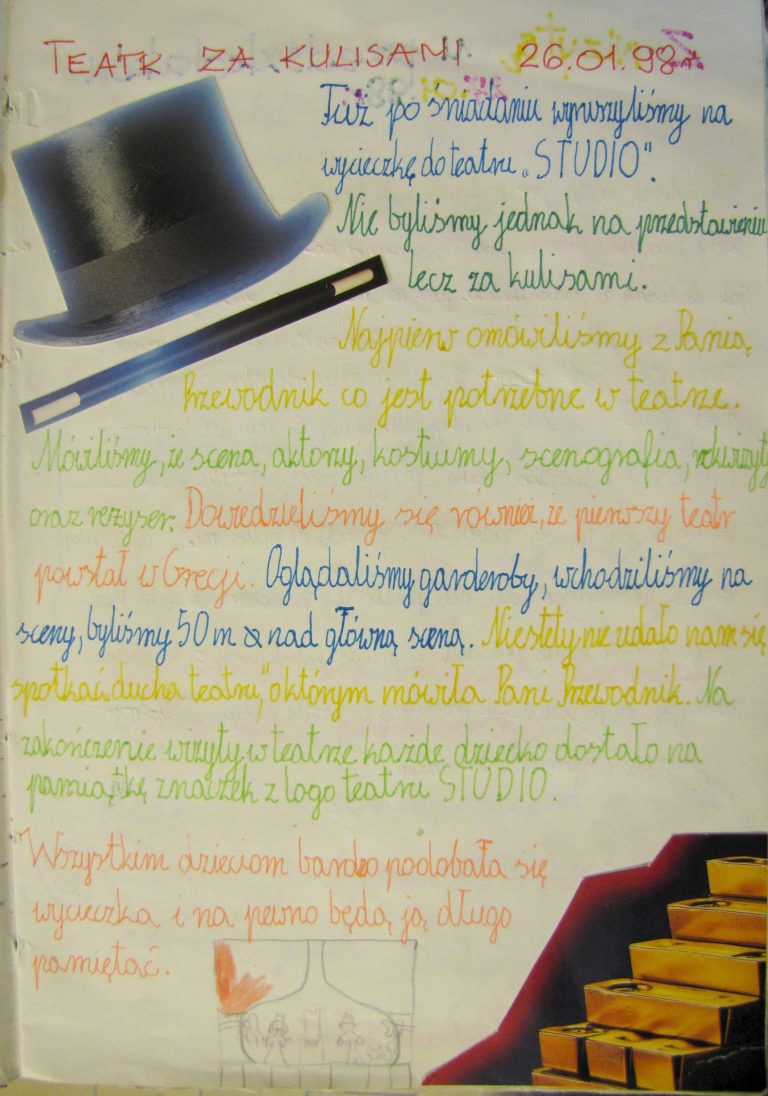 TEATR ZA KULISAMI 26.01.98r.
Tuż po śniadaniu wyruszyliśmy na
wycieczkę do teatru „STUDIO".
Nie byliśmy jednak na przedstawieniu
lecz za kulisami.
Najpierw omówiliśmy z Panią
Przewodnik co jest potrzebne w teatrze.
Mówiliśmy, że scena, aktorzy, kostiumy, scenografia, rekwizyty
oraz reżyser. Dowiedzieliśmy się również, że pierwszy teatr
powstał w Grecji. Oglądaliśmy garderoby, wchodziliśmy na
sceny, byliśmy 50 m nad główną sceną. Niestety nie udało nam się
spotkać „ducha teatru," o którym mówiła Pani Przewodnik. Na
zakończenie wizyty w teatrze każde dziecko dostało na
pamiątkę znaczek z logo teatru STUDIO.
Wszystkim dzieciom bardzo podobała się
wycieczka i na pewno będą ją długo
pamiętać.